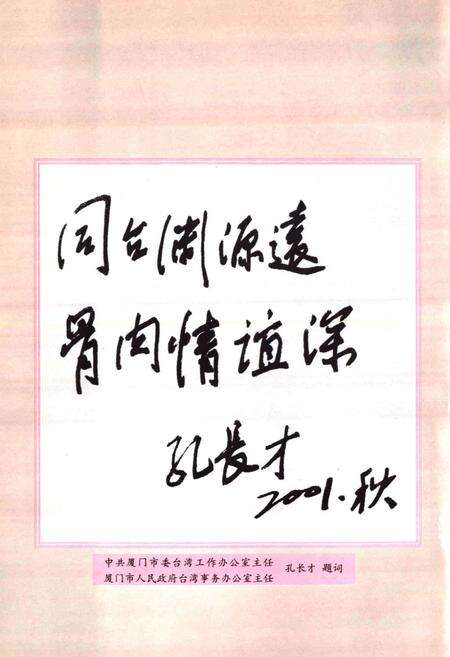 同台渊源遠
骨肉情谊深
孔長才
2001.秋
中共厦门市委台湾工作办公室主任
厦门市人民政府台湾事务办公室主任
孔长才 题词